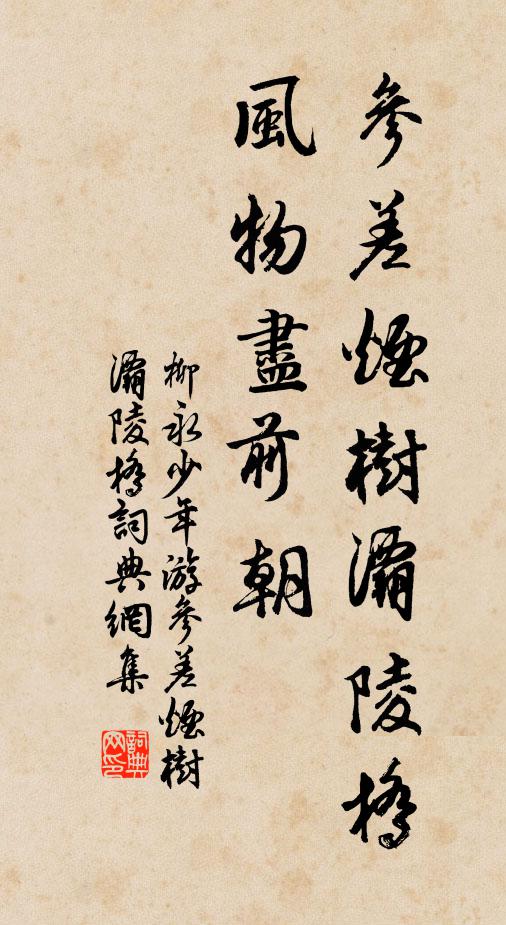 參差煙樹灞陵橋
風物盡前朝
柳永少年游參差煙樹
灞陵橋詞典網集
詞典網印